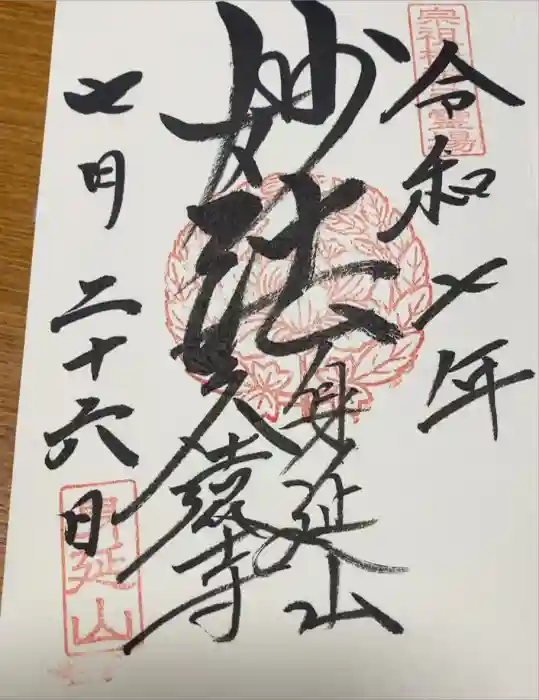 宗祖棲神霊場
令和七年
妙法
身延山
久遠寺
七月二十六日
身延山